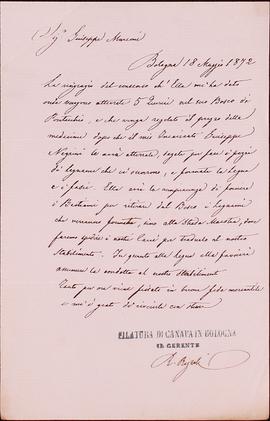 Sig. Giuseppe Marconi
Bologna 18 Maggio 1872
La ringrazio del consenso ch'Ella mi ha dato
onde vengano atterrate 5 Quercie nel suo Bosco di
Pontecchio, e che venga regolato il prezzo delle
medesime dopo che il mio Incaricato Giuseppe
Negrini le avrà atterrate, segate per fare i pezzi
di legname che ci vuonno, e formate le legne
e i fasci. Ella avrà la compiacenza di fornire
i Bestiami per ritirar dal Bosco i legnami
che verranno, fino alla Strada Maestra, dove
faremo spedire i nostri Carri per tradurlo al nostro
Stabilimento. In quanto alle legne ella favorirà
assumere la condotta al nostro Stabilimento
Tanto per mia visa in buona fede mercantile
e mi è grato di riverirla con stima
FILATURA DI CANAPA IN BOLOGNA
IL GERENTE